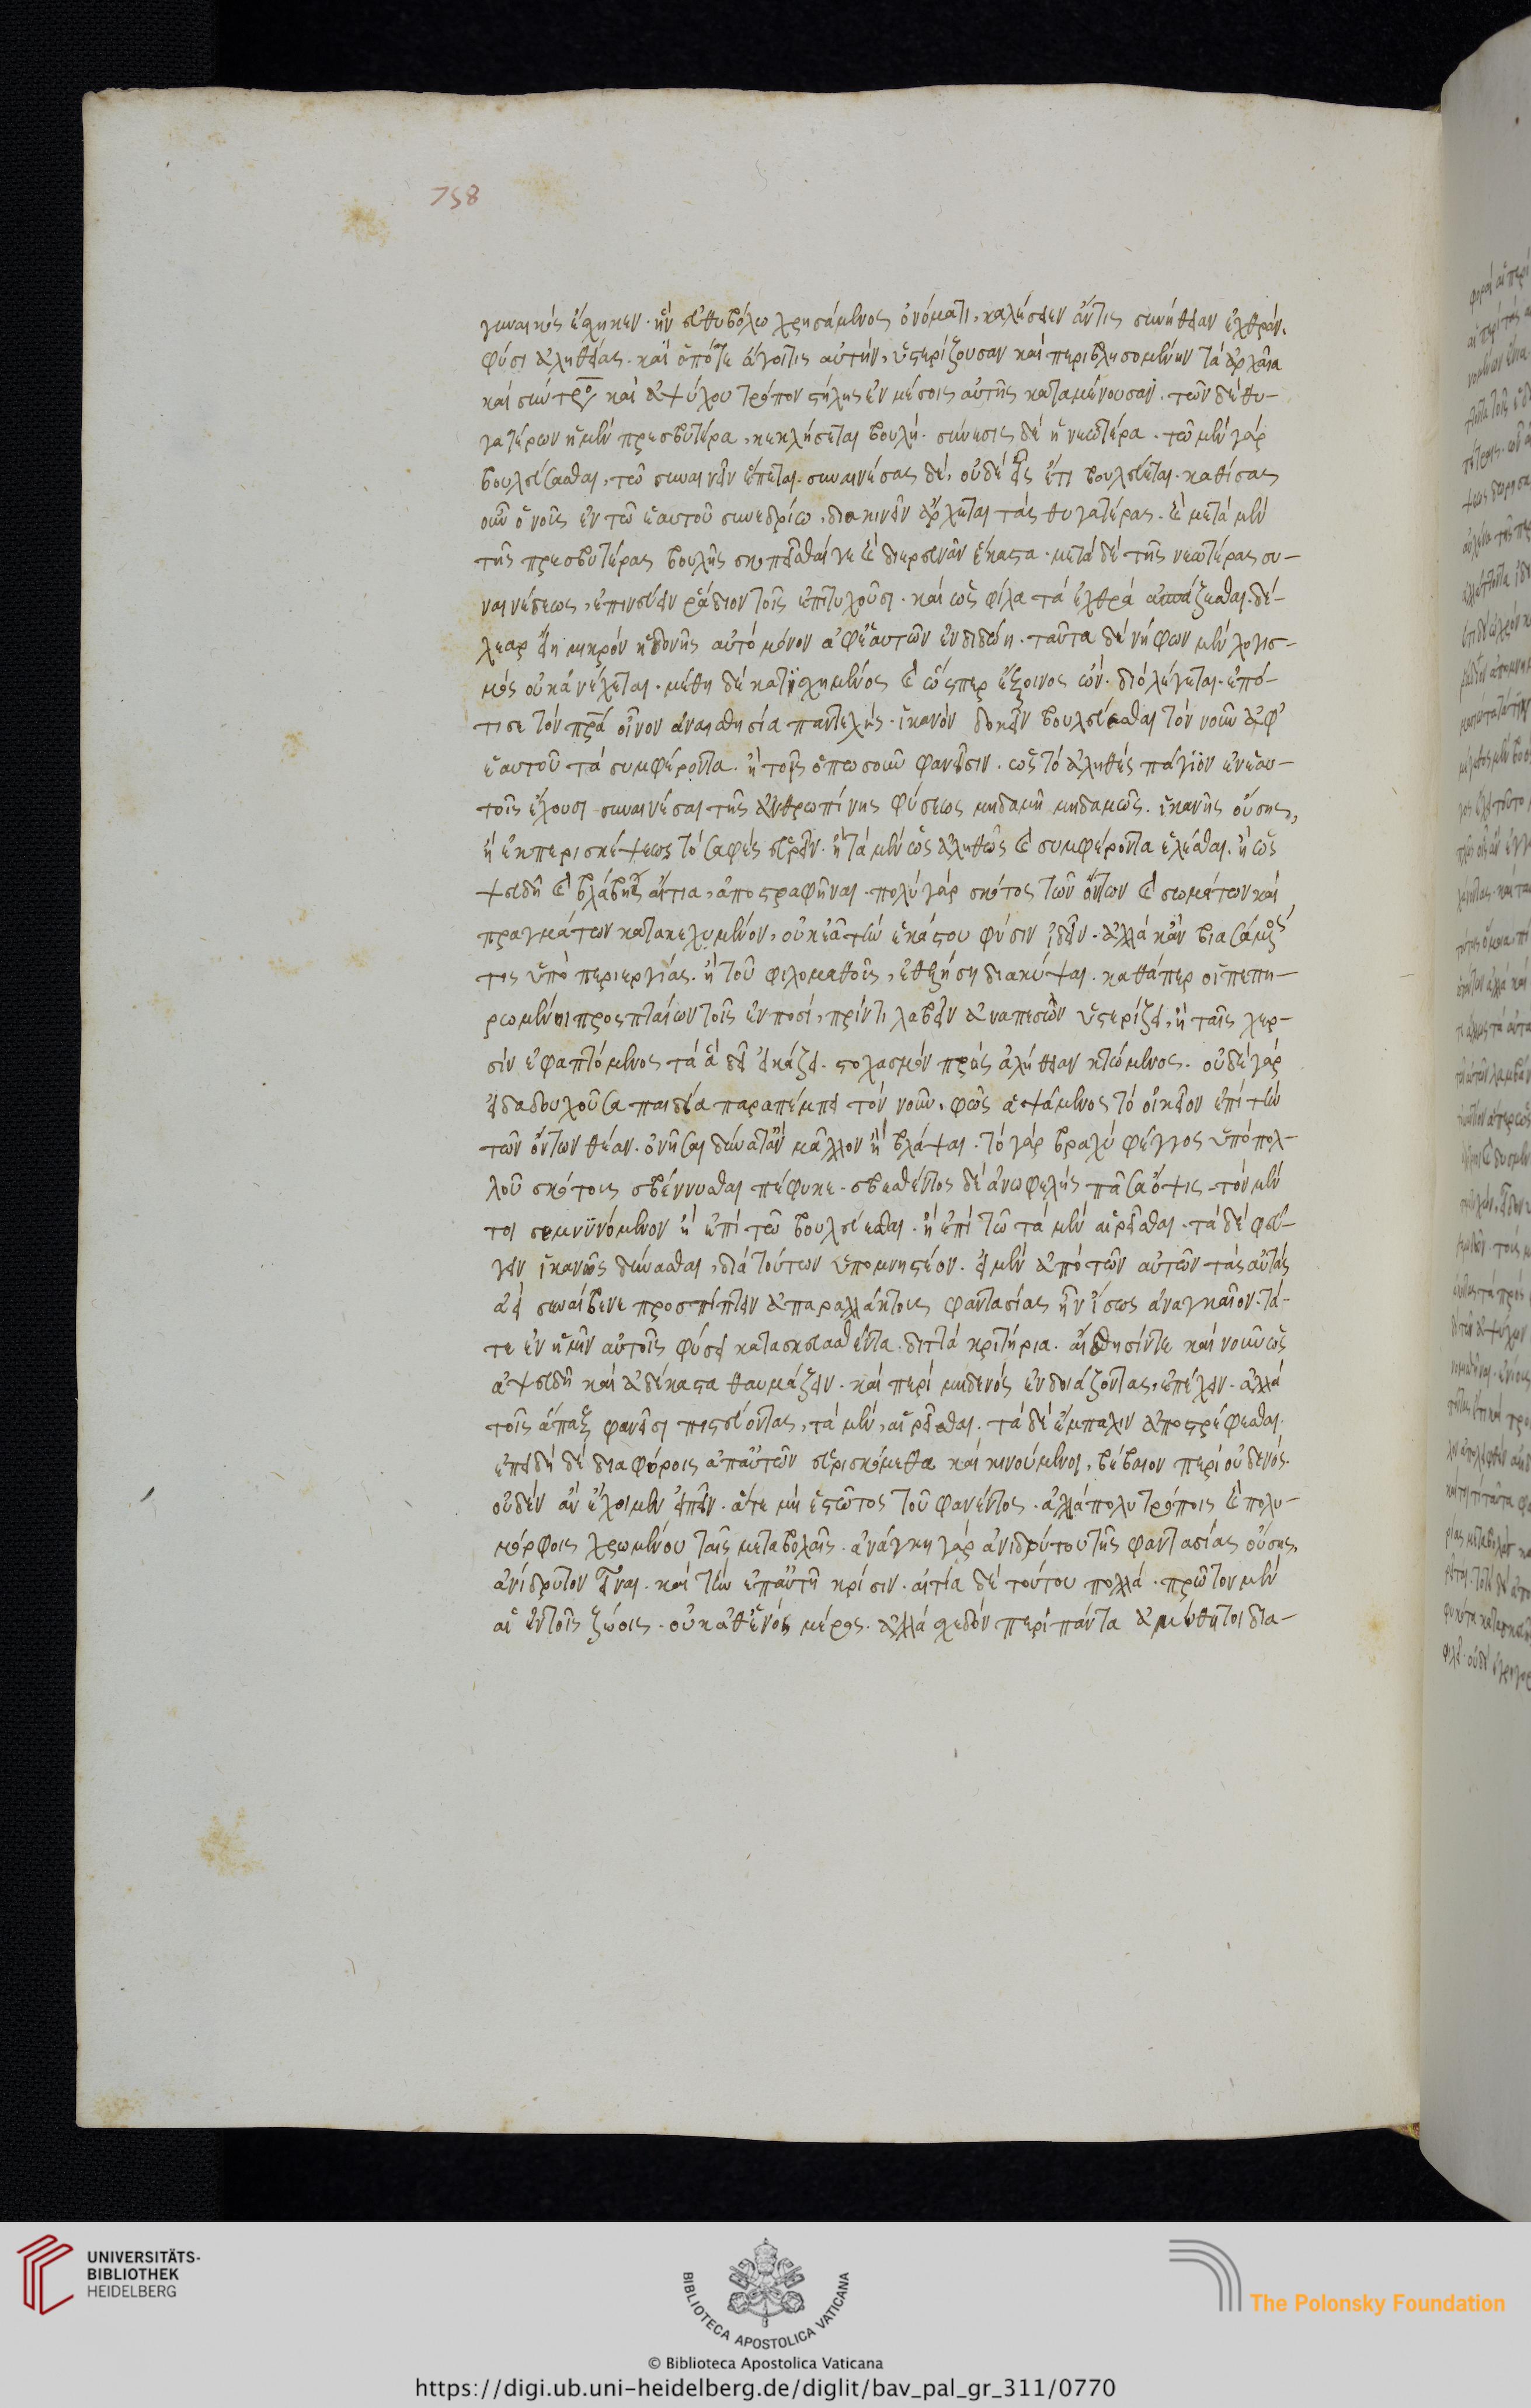 758
γυναικὸς ἔσχηκεν. ἣν εὐθυβόλω χρησάμενος ὀνόματι, καλέσειεν ἄν τις συνήθειαν ἐχθρὰν
φύσι ἀληθείας. καὶ ὁπότε ἄγοι τις αὐτὴν, ὑστερίζουσαν καὶ περιβλησομένην τὰ ἀρχαῖα
καὶ σύντρο καὶ ἀψύχου τρόπον στήλης ἐν μέσοις αὐτῆς καταμένουσαν. τῶν δὲ θυ-
γατέρων ἡ μὲν πρεσβυτέρα, κεκλήσεται βουλὴ. σύνεσις δὲ ἡ νεωτέρα. τῶ μὲν γὰρ
βουλεύσασθαι, τῶ συναινεῖν ἕπεται. συναινέσας δὲ, οὐδὲ εἷς ἔτι βουλεύεται. καθίσας
οὖν ὁ νοῦς ἐν τῶ ἑαυτοῦ συνεδρίω, διακινεῖν ἄρχεται τὰς θυγατέρας. καὶ μετὰ μὲν
τῆς πρεσβυτέρας βουλῆς σκοπεῖσθαί γε καὶ διερευνᾶν ἕκαστα. μετὰ δὲ τῆς νεωτέρας συ-
ναινέσεως, ἐπινεύειν ῥάδιον τοῖς ἐπιτυχοῦσι. καὶ ὡς φίλα τὰ ἐχθρὰ ἀσπάζεσθαι. δέ-
λεαρ εἴη μικρὸν ἡδονῆς αὐτὸ μόνον ἀφ' ἑαυτῶν ἐνδιδώη. ταῦτα δὲ νήφων μὲν λογισ-
μὸς οὐκ ἀνέχεται. μέθη δὲ κατισχημένος καὶ ὥσπερ ἔξοινος ὤν. διὸ λέγεται. ἐπό-
τισε τὸν πρα οἶνον ἀναισθησία παντελὴς. ἱκανὸν δοκεῖν βουλεύεσθαι τὸν νοῦν ἀφ'
ἑαυτοῦ τὰ συμφέροντα. ἢ τοῖς ὁπωσοῦν φανεῖσιν. ὡς τὸ ἀληθὲς πάγιον ἐν ἑαυ-
τοῖς ἔχουσι συναινέσαι τῆς ἀνθρωπίνης φύσεως μηδαμῆ μηδαμῶς. ἱκανῆς οὔσης,
ἢ ἐκ περισκέψεως τὸ σαφὲς εὑρεῖν. ἢ τὰ μὲν ὡς ἀληθῶς καὶ συμφέροντα ἑλέσθαι. ἢ ὡς
ψευδῆ καὶ βλάβης αἴτια, ἀποστραφῆναι. πολὺ γὰρ σκότος τῶν ὄντων καὶ σωμάτων καὶ
πραγμάτων κατακεχυμένον, οὐκ ἐᾶ τὴν ἑκάστου φύσιν ἰδεῖν. ἀλλὰ κἂν βιασάμενος
τις ὑπὸ περιεργίας. ἢ τοῦ φιλομαθοῦς, ἐθελήση διακύψαι. καθάπερ οἱ πεπη-
ρωμένοι προσπταίων τοῖς ἐν ποσὶ, πρίν τι λαβεῖν ἀναπεσὼν ὑστερίζει, ἢ ταῖς χερ-
σὶν ἐφαπτόμενος τὰ ἄδηλα εἰκάζει. στοχασμὸν πρὸς ἀλήθειαν κτώμενος. οὐδὲ γὰρ
εἰ δαδουχοῦσα παιδεία παραπέμπει τὸν νοῦν, φῶς ἁψάμενος τὸ οἰκεῖον ἐπὶ τὴν
τῶν ὄντων θέαν. ὀνῆσαι δύναιτ' ἂν μᾶλλον ἢ βλάψαι. τὸ γὰρ βραχὺ φέγγος ὑπὸ πολ-
λοῦ σκότους σβέννυσθαι πέφυκε. σβεσθέντος δὲ ἀνωφελὴς πᾶσα ὄψις. τὸν μὲν
τοι σεμνυνόμενον ἢ ἐπὶ τῶ βουλεύεσθαι. ἢ ἐπὶ τῶ τὰ μὲν αἱρεῖσθαι. τὰ δὲ φεύ-
γειν ἱκανῶς δύνασθαι, διὰ τούτων ὑπομνηστέον. εἰ μὲν ἀπὸ τῶν αὐτῶν τὰς αὐτὰς
ἀεὶ συνέβαινε προσπίπτειν ἀπαραλλάκτους φαντασίας ἦν ἴσως ἀναγκαῖον. τά-
τε ἐν ἡμῖν αὐτοῖς φύσει κατασκευασθέντα διττὰ κριτήρια. αἴσθησίν τε καὶ νοῦν ὡς
ἀψευδῆ καὶ ἀδέκαστα θαυμάζειν. καὶ περὶ μηδενὸς ἐνδοιάζοντας, ἐπέχειν. ἀλλὰ
τοῖς ἅπαξ φανεῖσι πιστεύοντας, τὰ μὲν, αἱρεῖσθαι. τὰ δὲ ἔμπαλιν ἀποστρέφεσθαι.
ἐπειδὴ δὲ διαφόροις ἀπ' αὐτῶν εὑρισκόμεθα καὶ κινούμενοι, βέβαιον περὶ οὐδενὸς
οὐδὲν ἂν ἔχοιμεν εἰπεῖν. ἅτε μὴ ἑστῶτος τοῦ φανέντος. ἀλλὰ πολυτρόποις καὶ πολυ-
μόρφοις χρωμένου ταῖς μεταβολαῖς. ἀνάγκη γὰρ ἀνιδρύτου τῆς φαντασίας οὔσης,
ἀνίδρυτον εἶναι. καὶ τὴν ἐπ' αὐτῆ κρίσιν. αἰτία δὲ τούτου πολλὰ. πρῶτον μὲν
αἱ ἐν τοῖς ζώοις. οὐ καθ' ἑνὸς μέρος. ἀλλὰ σχεδὸν περὶ πάντα ἀμύθητοι δια-
UNIVERSITÄTS-
BIBLIOTHEK
HEIDELBERG
BIBLIOTECA APOSTOLICA VATICANA
The Polonsky Foundation
© Biblioteca Apostolica Vaticana
https://digi.ub.uni-heidelberg.de/diglit/bav_pal_gr_311/0770